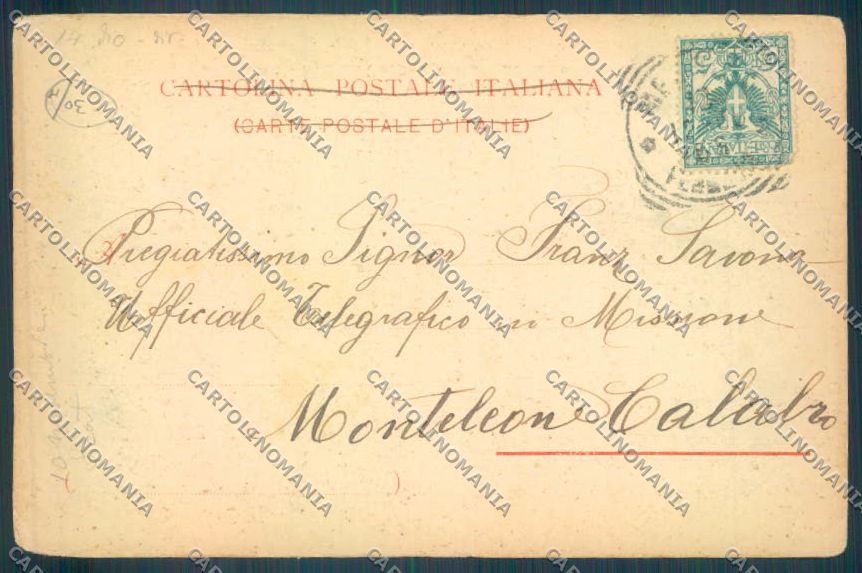 CARTOLINA POSTALE ITALIANA
(CARTE POSTALE D'ITALIE)
30
Pregiatissimo Signor Franz Savona
Ufficiale Telegrafico in Missione
Monteleone Calabro
CARTOLINOMANIA